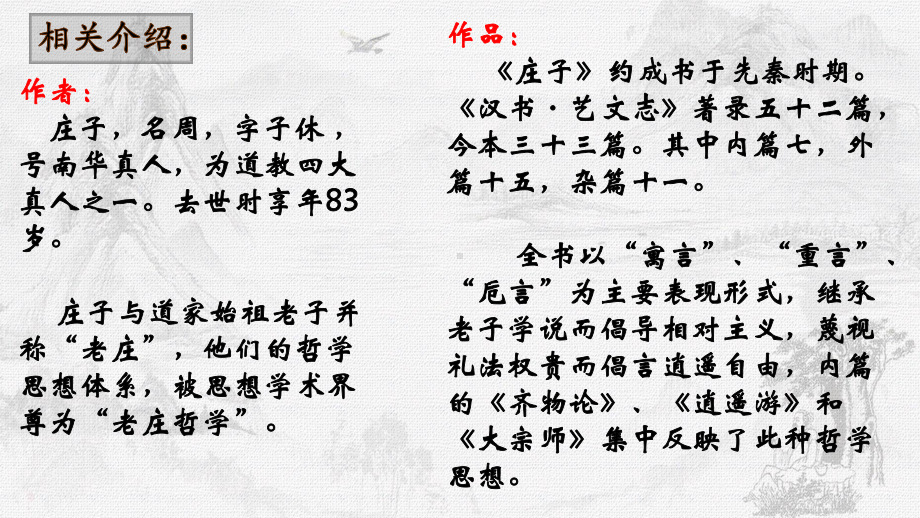 相关介绍：
作者：
庄子，名周，字子休，
号南华真人，为道教四大
真人之一。去世时享年83
岁。
庄子与道家始祖老子并
称“老庄”，他们的哲学
思想体系，被思想学术界
尊为“老庄哲学”。
作品：
《庄子》约成书于先秦时期。
《汉书·艺文志》著录五十二篇，
今本三十三篇。其中内篇七，外
篇十五，杂篇十一。
全书以“寓言”、“重言”、
“卮言”为主要表现形式，继承
老子学说而倡导相对主义，蔑视
礼法权贵而倡言逍遥自由，内篇
的《齐物论》、《逍遥游》和
《大宗师》集中反映了此种哲学
思想。